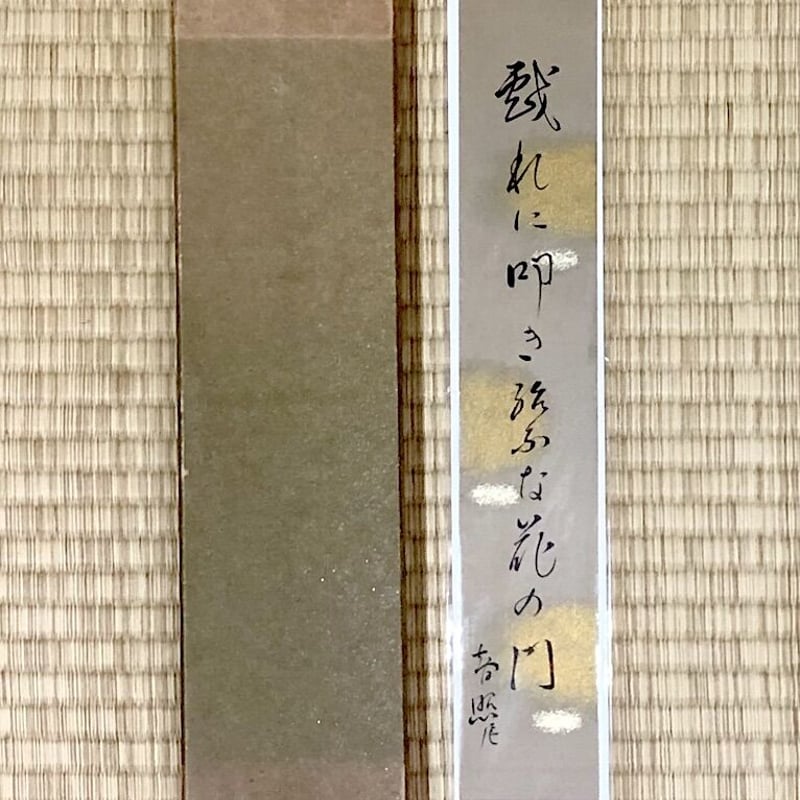 戯れに叩き給ふな花の門
春照尼